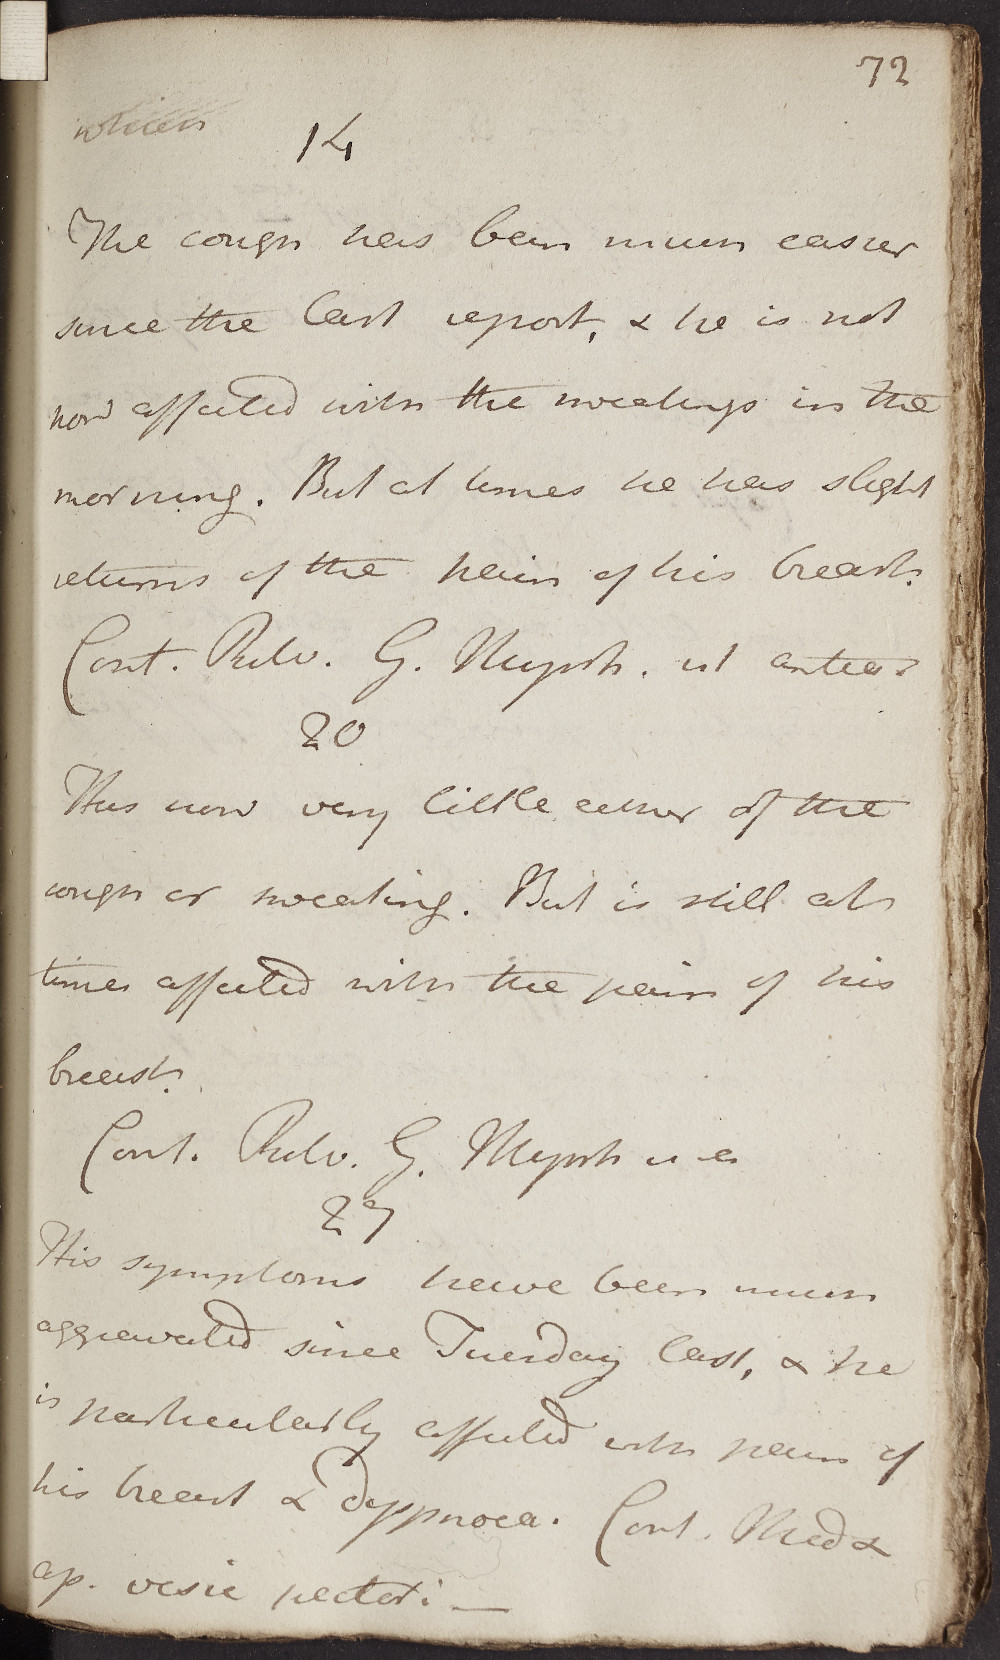 72
which
14
The cough has been much easier
since the last report, & he is not
now affected with the sweatings in the
morning. But at times he has slight
returns of the pain of his breast.
Cont. Pulv. G. Myrrh. ut antea
20
Has now very little either of the
cough or sweating. But is still at
times affected with the pain of his
breast.
Cont. Pulv. G. Myrrh u a
27
His symptoms have been much
aggravated since Tuesday last, & he
is particularly affected with pain of
his breast & dyspnoea. Cont. Med &
ap. vesic pectori —